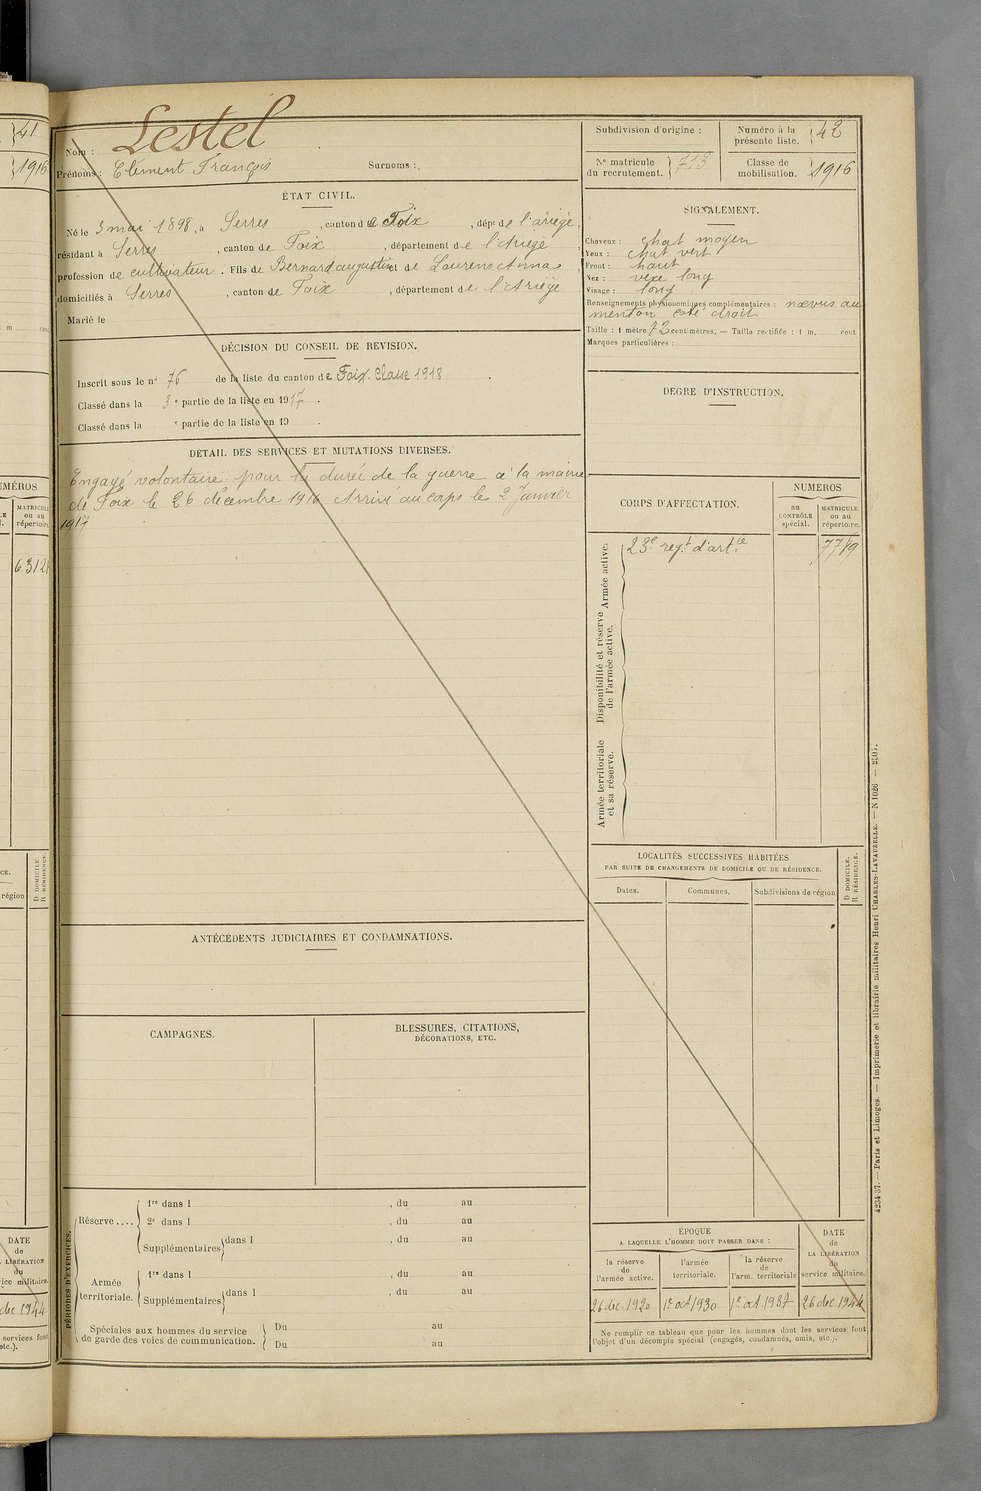 41
1916
Nom : Lestel
Prénoms : Clément François Surnoms :
Subdivision d'origine :
Numéro à la présente liste. 42
N° matricule du recrutement. 713
Classe de mobilisation. 1916
ÉTAT CIVIL.
Né le 3 mai 1898, à Serres, canton de Foix, dépt de l'ariège,
résidant à Serres, canton de Foix, département de l'Ariège
profession de cultivateur. Fils de Bernard augustin et de Laurens Anna
domiciliés à Serres, canton de Foix, département de l'Ariège
Marié le
SIGNALEMENT.
Cheveux : chat moyen
Yeux : chat vert
Front : haut
Nez : vexe long
Visage : long
Renseignements physionomiques complémentaires : nœvus au
menton coté droit
Taille : 1 mètre 72 centimètres. — Taille rectifiée : 1 m. cent
Marques particulières :
DÉCISION DU CONSEIL DE REVISION.
Inscrit sous le n° 76 de la liste du canton de Foix. Classe 1918
Classé dans la 3e partie de la liste en 1917.
Classé dans la e partie de la liste en 19 .
DEGRE D'INSTRUCTION.
DÉTAIL DES SERVICES ET MUTATIONS DIVERSES.
Engagé volontaire pour la durée de la guerre à la mairie
de Foix le 26 décembre 1916 Arrivé au corps le 2 Janvier
1917
CORPS D'AFFECTATION.
NUMEROS
au CONTRÔLE spécial.
MATRICULE ou au répertoire.
Armée active.
23e regt d'artie
7719
Disponibilité et réserve de l'armée active.
Armée territoriale et sa réserve.
LOCALITÉS SUCCESSIVES HABITÉES
PAR SUITE DE CHANGEMENTS DE DOMICILE OU DE RÉSIDENCE.
Dates. Communes. Subdivisions de région
D DOMICILE.
R RÉSIDENCE.
ANTÉCÉDENTS JUDICIAIRES ET CONDAMNATIONS.
CAMPAGNES.
BLESSURES, CITATIONS,
DÉCORATIONS, ETC.
PÉRIODES D'EXERCICES.
Réserve....
1re dans l , du au
2e dans l , du au
Supplémentaires dans l , du au
Armée territoriale.
1re dans l , du au
Supplémentaires dans l , du au
Spéciales aux hommes du service
de garde des voies de communication.
Du au
Du au
ÉPOQUE
A LAQUELLE L'HOMME DOIT PASSER DANS :
la réserve de l'armée active.
l'armée territoriale.
la réserve de l'arm. territoriale
DATE de LA LIBÉRATION du service militaire.
26 dec. 1920 1er oct 1930 1er oct. 1937 26 dec. 1944
Ne remplir ce tableau que pour les hommes dont les services font
l'objet d'un décompte spécial (engagés, condamnés, omis, etc.).
4234-37. — Paris et Limoges. — Imprimerie et librairie militaires Henri CHARLES-LAVAUZELLE. — N 1026
NUMÉROS
MATRICULE
ou au
répertoire
6312
région
D DOMICILE
R RÉSIDENCE.
DATE
de
LIBÉRATION
du
service militaire.
dec 1944
services font
etc.).